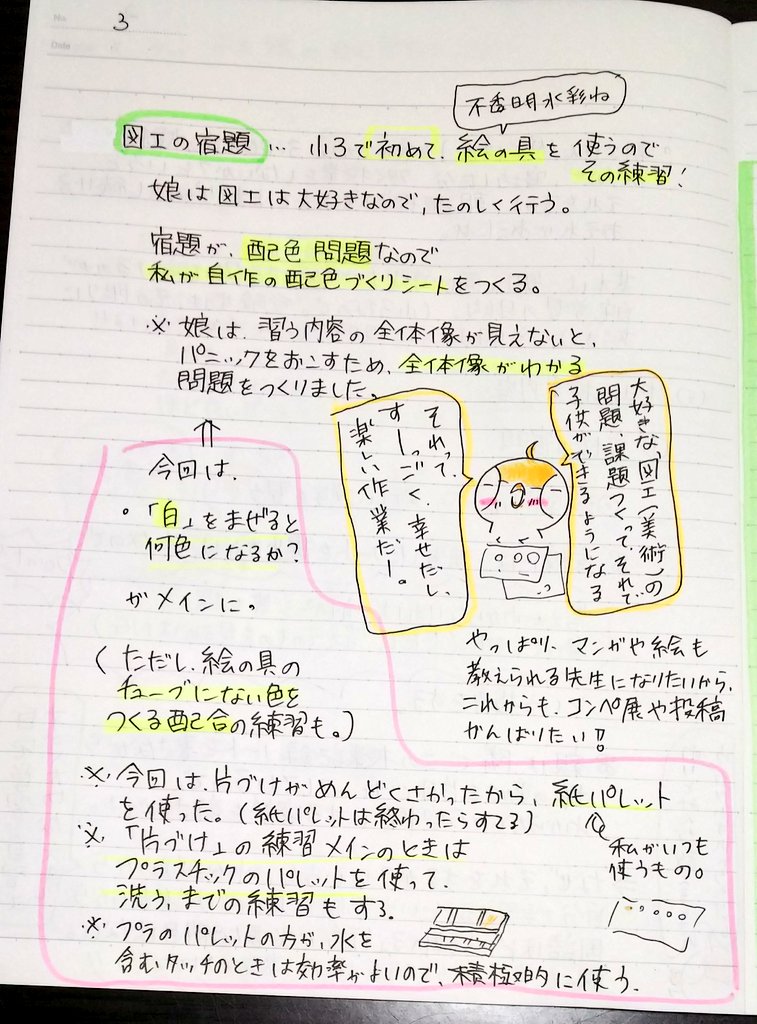 No. 3
Date
不透明水彩ね
図工の宿題 … 小3で初めて、絵の具を使うので
その練習!
娘は図工は大好きなので、たのしく行う。
宿題が、配色問題なので
私が自作の配色づくりシートをつくる。
※ 娘は、習う内容の全体像が見えないと、
パニックをおこすため、全体像がわかる
問題をつくりました。
⇑
今回は、
・「白」をまぜると
何色になるか?
がメインに。
(ただし、絵の具の
チューブにない色を
つくる配合の練習も。)
大好きな、図工(美術)の
問題、課題つくって、それで、
子供ができるようになる
それって、
すーっごく、幸せだし、
楽しい作業だー。
やっぱり、マンガや絵も
教えられる先生になりたいから、
これからも、コンペ展や投稿
がんばりたい!!
※ 今回は、片づけがめんどくさかったから、紙パレット
を使った。(紙パレットは終わったらすてる)
私がいつも
使うもの。
※「片づけ」の練習メインのときは
プラスチックのパレットを使って、
洗う、までの練習もする。
※ プラのパレットの方が、水を
含むタッチのときは効率がよいので、積極的に使う。